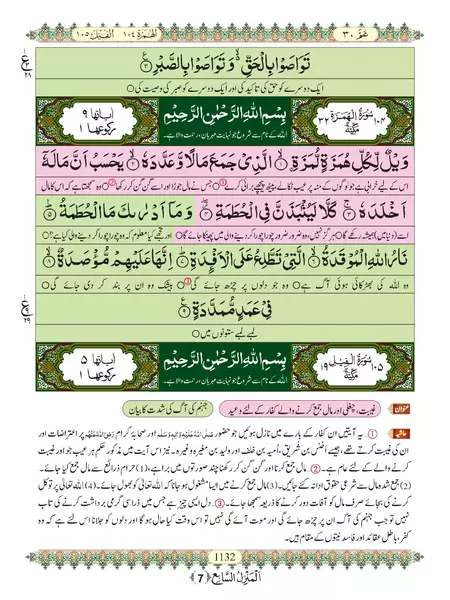 عَمَّ ۳۰
اَلْهُمَزَة ۱۰٤ اَلْفِيْل ۱۰۵
تَوَاصَوْا بِالْحَقِّ ۙ وَتَوَاصَوْا بِالصَّبْرِ ۟۳
ع ۲۸
ایک دوسرے کو حق کی تاکید کی اور ایک دوسرے کو صبر کی وصیت کی
۱۰٤ سُوْرَةُ الْهُمَزَة مَكِّيَّةٌ ۳۲
بِسْمِ اللّٰهِ الرَّحْمٰنِ الرَّحِيْمِ
اللہ کے نام سے شروع جو نہایت مہربان، رحمت والا ہے۔
اٰیاتها ۹ رکوعها ۱
وَيْلٌ لِّكُلِّ هُمَزَةٍ لُّمَزَةِ ۟ۙ۱ الَّذِيْ جَمَعَ مَالًا وَّعَدَّدَهٗ ۟ۙ۲ يَحْسَبُ اَنَّ مَالَهٗۤ
اس کے لیے خرابی ہے جو لوگوں کے منہ پر عیب نکالے، پیٹھ پیچھے برائی کرے جس نے مال جوڑا اور اسے گن گن کر رکھا وہ سمجھتا ہے کہ اس کا مال
اَخْلَدَهٗ ۟ۚ۳ كَلَّا لَيُنْۢبَذَنَّ فِي الْحُطَمَةِ ۟ؗۖ۴ وَمَاۤ اَدْرٰىكَ مَا الْحُطَمَةُ ۟ؕ۵
اسے (دنیا میں) ہمیشہ رکھے گا ہرگز نہیں، وہ ضرور ضرور چورا چورا کر دینے والی میں پھینکا جائے گا اور تجھے کیا معلوم کہ وہ چورا چورا کر دینے والی کیا ہے؟
نَارُ اللّٰهِ الْمُوْقَدَةُ ۟ۙ۶ الَّتِيْ تَطَّلِعُ عَلَى الْاَفْـِٕدَةِ ۟ؕ۷ اِنَّهَا عَلَيْهِمْ مُّؤْصَدَةٌ ۟ۙ۸
وہ اللہ کی بھڑکائی ہوئی آگ ہے وہ جو دلوں پر چڑھ جائے گی بیشک وہ ان پر بند کر دی جائے گی
فِيْ عَمَدٍ مُّمَدَّدَةٍ ۟۹
ع ۲۹
لمبے لمبے ستونوں میں
۱۰۵ سُوْرَةُ الْفِيْل مَكِّيَّةٌ ۱۹
بِسْمِ اللّٰهِ الرَّحْمٰنِ الرَّحِيْمِ
اللہ کے نام سے شروع جو نہایت مہربان، رحمت والا ہے۔
اٰیاتها ۵ رکوعها ۱
عنوان غیبت، چغلی اور مال جمع کرنے والے کفار کے لئے وعید جہنم کی آگ کی شدت کا بیان
حاشیہ 1 ۔ یہ آیتیں ان کفار کے بارے میں نازل ہوئیں جو حضور صلی اللہ علیہ والہ وسلم اور صحابۂ کرام رضی اللہ عنہم پر اعتراضات اور
ان کی غیبت کرتے تھے، جیسے اخنس بن شریق، اُمیہ بن خلف اور ولید بن مغیرہ وغیرہ۔ نیز اس آیت میں مذکور حکم ہر عیب جو اور غیبت
کرنے والے کے لئے عام ہے۔ 2 ۔ مال جمع کرنا اور گن گن کر رکھنا چند صورتوں میں برا ہے، (1) حرام ذرائع سے مال جمع کیا جائے۔
(2) جمع شدہ مال سے شرعی حقوق ادا نہ کئے جائیں۔ (3) مال جمع کرنے میں ایسا مشغول ہو جانا کہ اللہ تعالیٰ کو بھول جائے۔ (4) اللہ تعالیٰ پر توکل
کرنے کی بجائے صرف مال کو آفات دور کرنے کا ذریعہ سمجھا جائے۔ 3 ۔ دل ایسی چیز ہے جس میں ذرا سی گرمی برداشت کرنے کی تاب
نہیں تو جب جہنم کی آگ ان پر چڑھ جائے گی اور موت آئے گی نہیں تو اس وقت کیا حال ہو گا اور دلوں کو جلانا اس لئے ہے کہ وہ
کفر، باطل عقائد اور فاسد نیتوں کے مقام ہیں۔
1132
اَلْمَنْزِلُ السَّابِعُ ﴿7﴾